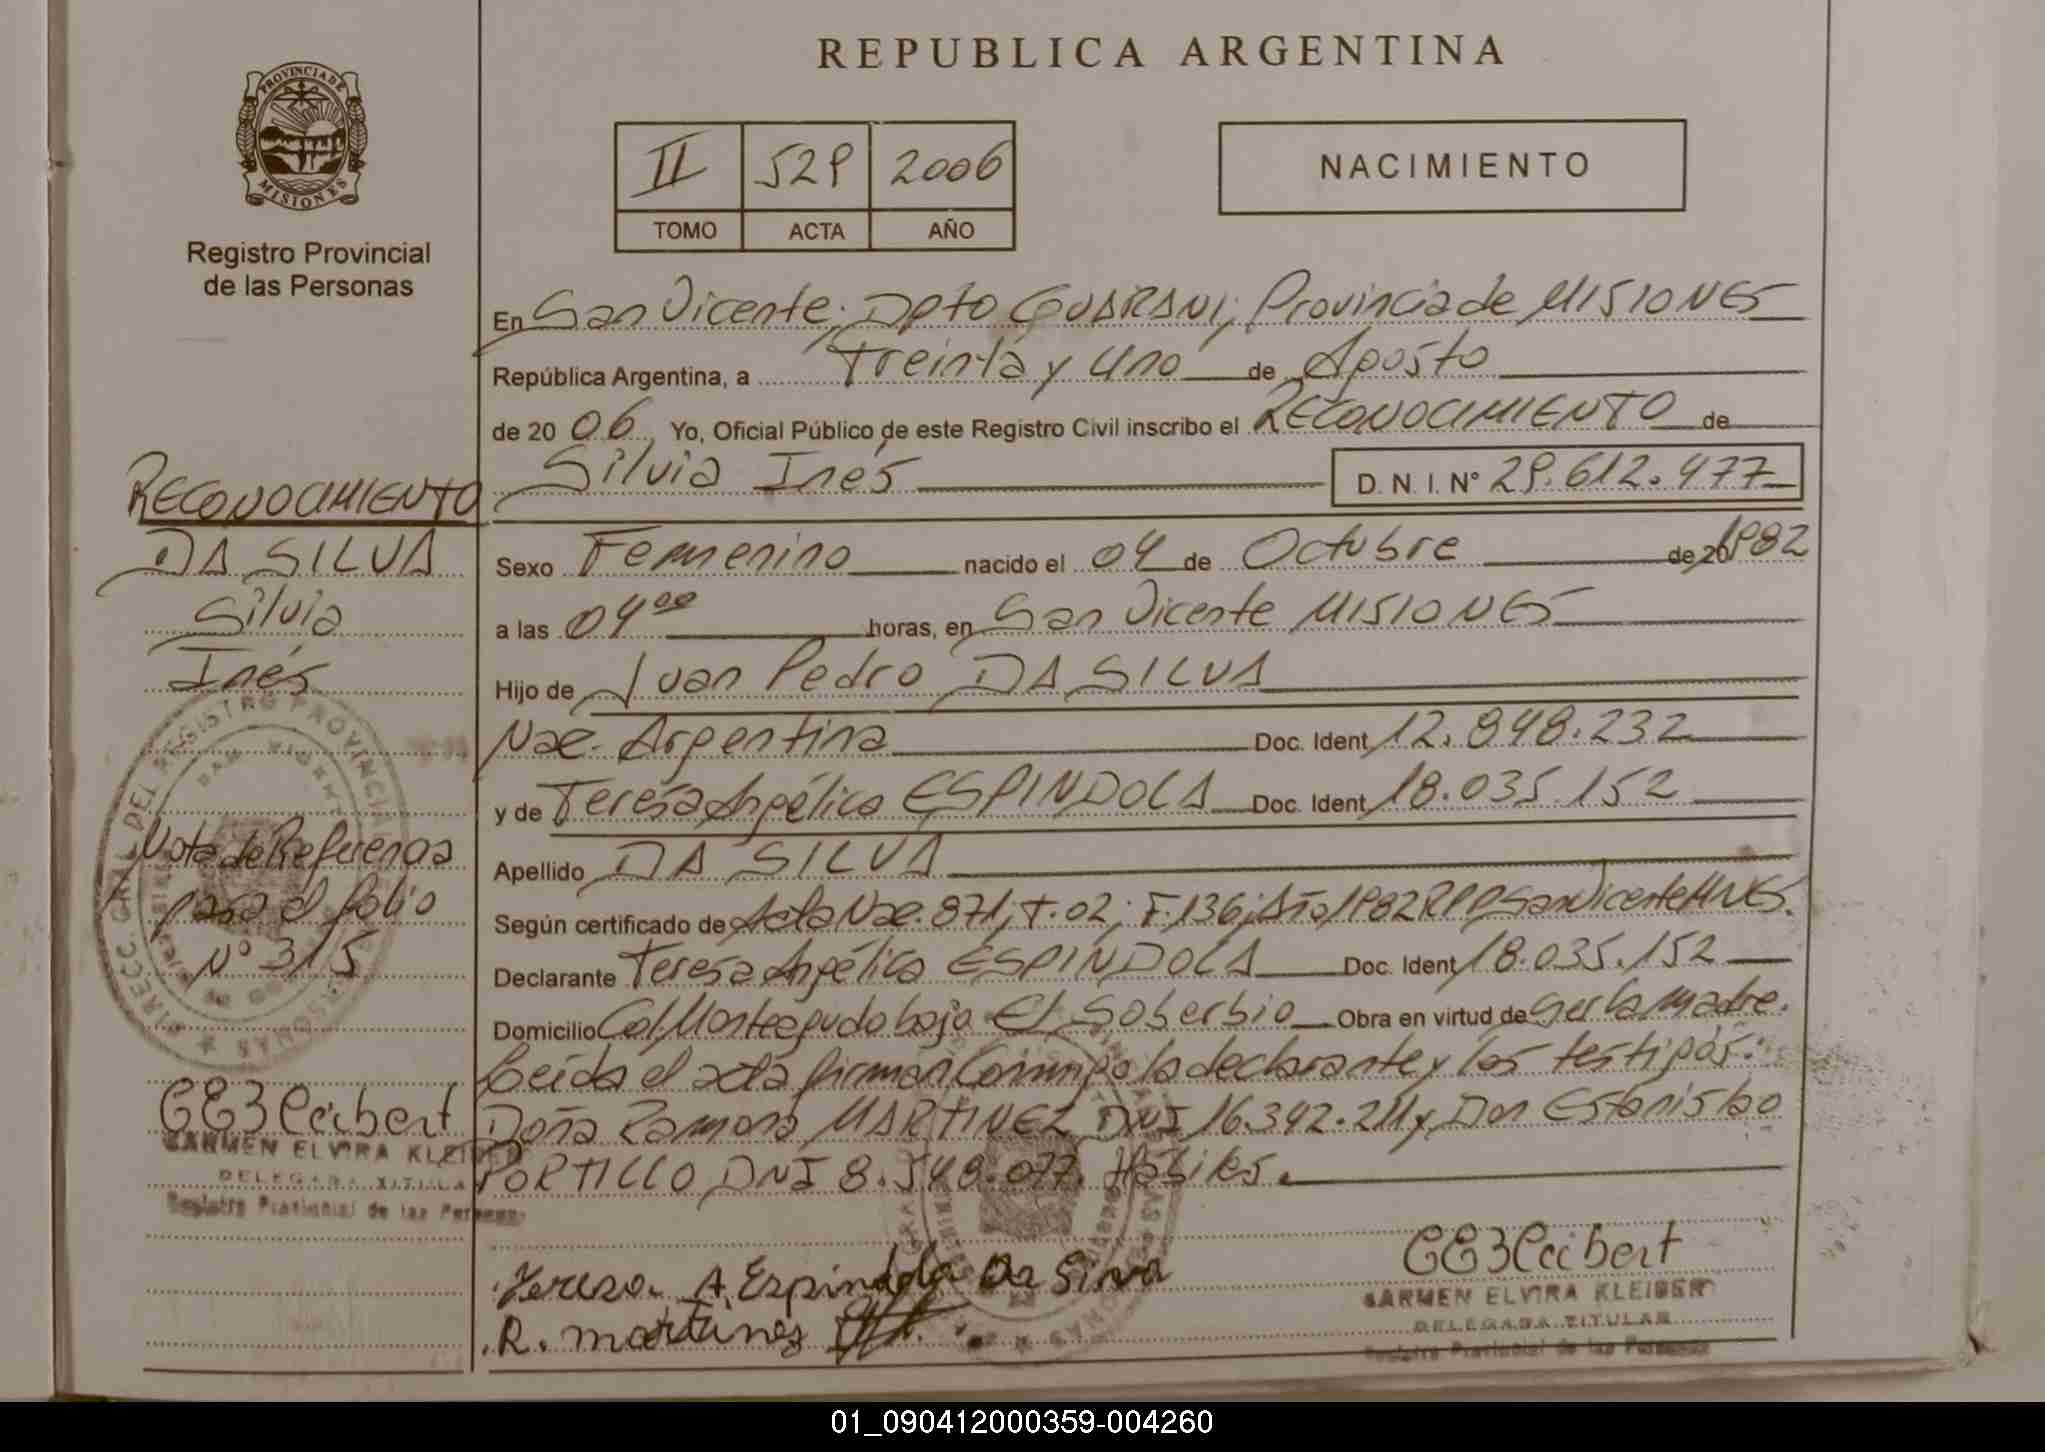 REPUBLICA ARGENTINA
PROVINCIA DE MISIONES
Registro Provincial
de las Personas
II 529 2006
TOMO ACTA AÑO
NACIMIENTO
En San Vicente; Dpto GUARANI; Provincia de MISIONES
República Argentina, a Treinta y Uno de Agosto
de 20 06 Yo, Oficial Público de este Registro Civil inscribo el RECONOCIMIENTO de
Silvia Inés D. N. I. Nº 29.612.477
Sexo Femenino nacido el 04 de Octubre de 20 1982
a las 04⁰⁰ horas, en San Vicente MISIONES
Hijo de Juan Pedro DA SILVA
Nac. Argentina Doc. Ident 12.848.232
y de Teresa Angélica ESPINDOLA Doc. Ident 18.035.152
Apellido DA SILVA
Según certificado de Acta Nac. 871; T. 02; F. 136; Año 1982 RPP San Vicente MNES.
Declarante Teresa Angélica ESPINDOLA Doc. Ident 18.035.152
Domicilio Col. Monteagudo bajo El Soberbio Obra en virtud de ser la madre.
Leída el acta firman Conmigo la declarante y los testigos:
Doña Ramona MARTINEZ DNI 16.392.211 y Don Estanislao
PORTILLO DNI 8.548.077. Hábiles.
Teresa A. Espindola Da Silva
R. martines
CARMEN ELVIRA KLEIBER
DELEGADA TITULAR
Registro Provincial de las Personas
RECONOCIMIENTO
DA SILVA
Silvia
Inés
Nota de Referencia
para el folio
Nº 315
CARMEN ELVIRA KLEIBER
DELEGADA TITULAR
Registro Provincial de las Personas
01_090412000359-004260